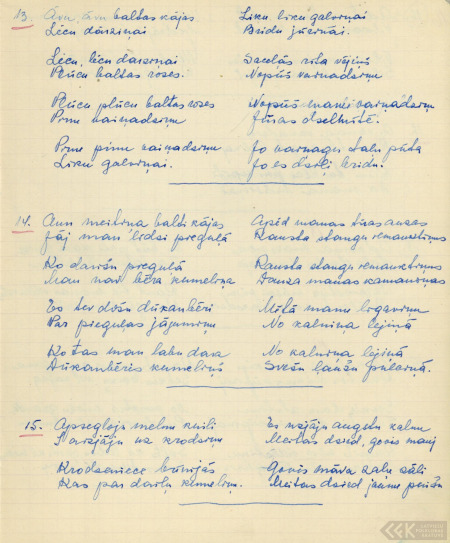 13. Āvu, āvu baltas kājas
Lecu dārziņai
Lecu, lecu dārziņai
Plūcu baltas rozes.
Plūcu plūcu baltas rozes
Pinu vaiņadziņu
Pinu pinu vaiņadziņu
Liku galviņai.
Liku liku galviņai
Bridu jūriņai.
Sacēlās rīta vējiņš
Nopūš vaiņadziņu
Nopūš manu vaiņadziņu
Jūras dzelmītē.
Jo vainags tālu pūta
Jo es dziļi bridu.
14. Aun meitiņa balti kājas
Jāj man līdzi pieguļā
Ko darīšu pieguļā
Man nav bēra kumeliņa
Es tev došu dūkanbēri
Par pieguļas jājumiņu
Ko tas man labu dara
Dūkanbēris kumeliņš
Apēd manas tīras auzas
Rausta stangu iemauktiņus
Rausta stangu iemauktiņus
Dauza manas kamaniņas
Mīļā manu līgaviņu
No kalniņa lejiņā
No kalniņa lejiņā
Svešu ļaužu pulciņā.
15. Apsegloju melnu kuili
Aizjāju uz krodziņu
Krodzeniece brīnījās
Kas par dailu kumeliņu.
Es uzjāju augstu kalnu
Meitas dzied, govis mauj
Govis māva zaļu zāli
Meitas dzied jaunu puišu
LATVIEŠU FOLKLORAS KRĀTUVE